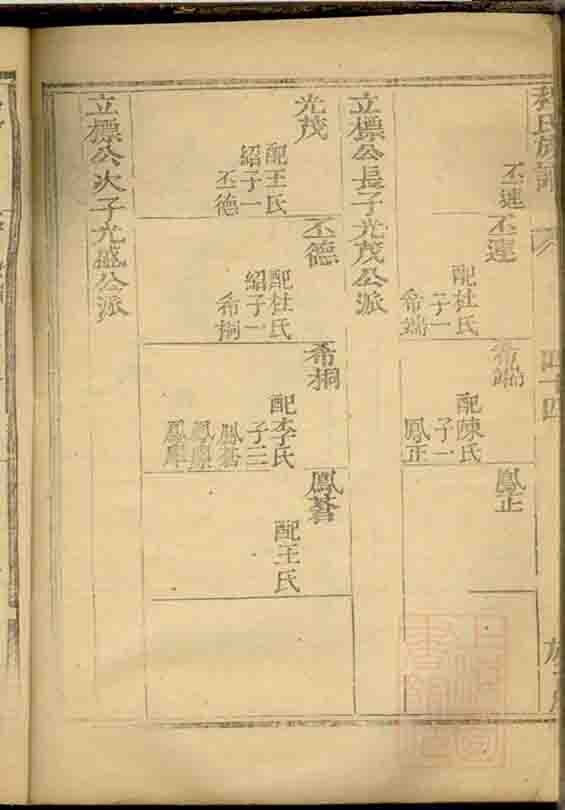 氏族譜
四十四
丕連
丕連
配杜氏
子一
希端
希端
配陳氏
子一
鳳正
鳳正
立標公長子光茂公派
光茂
配王氏
紹子一
丕德
丕德
配杜氏
紹子一
希桐
希桐
配李氏
子三
鳳蒼
鳳
鳳
鳳蒼
配王氏
立標公次子光盛公派
上海圖書館藏